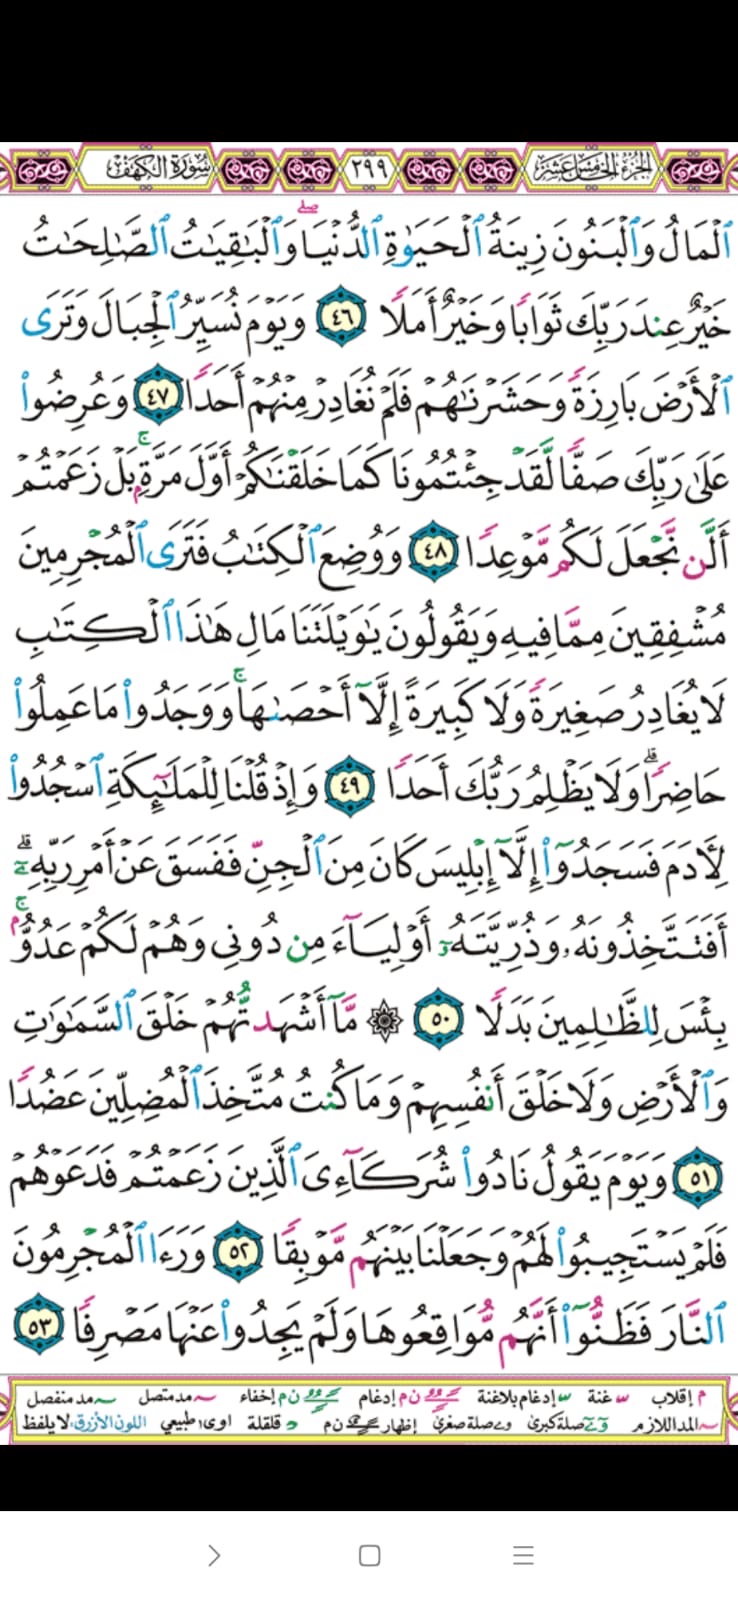 الجزء الخامس عشر ٢٩٩ سورة الكهف
ٱلْمَالُ وَٱلْبَنُونَ زِينَةُ ٱلْحَيَوٰةِ ٱلدُّنْيَا ۖ وَٱلْبَٰقِيَٰتُ ٱلصَّٰلِحَٰتُ
خَيْرٌ عِندَ رَبِّكَ ثَوَابًا وَخَيْرٌ أَمَلًا ٤٦ وَيَوْمَ نُسَيِّرُ ٱلْجِبَالَ وَتَرَى
ٱلْأَرْضَ بَارِزَةً وَحَشَرْنَٰهُمْ فَلَمْ نُغَادِرْ مِنْهُمْ أَحَدًا ٤٧ وَعُرِضُوا۟
عَلَىٰ رَبِّكَ صَفًّا لَّقَدْ جِئْتُمُونَا كَمَا خَلَقْنَٰكُمْ أَوَّلَ مَرَّةٍۭ ۚ بَلْ زَعَمْتُمْ
أَلَّن نَّجْعَلَ لَكُم مَّوْعِدًا ٤٨ وَوُضِعَ ٱلْكِتَٰبُ فَتَرَى ٱلْمُجْرِمِينَ
مُشْفِقِينَ مِمَّا فِيهِ وَيَقُولُونَ يَٰوَيْلَتَنَا مَالِ هَٰذَا ٱلْكِتَٰبِ
لَا يُغَادِرُ صَغِيرَةً وَلَا كَبِيرَةً إِلَّآ أَحْصَىٰهَا ۚ وَوَجَدُوا۟ مَا عَمِلُوا۟
حَاضِرًا ۗ وَلَا يَظْلِمُ رَبُّكَ أَحَدًا ٤٩ وَإِذْ قُلْنَا لِلْمَلَٰٓئِكَةِ ٱسْجُدُوا۟
لِءَادَمَ فَسَجَدُوٓا۟ إِلَّآ إِبْلِيسَ كَانَ مِنَ ٱلْجِنِّ فَفَسَقَ عَنْ أَمْرِ رَبِّهِۦٓ ۗ
أَفَتَتَّخِذُونَهُۥ وَذُرِّيَّتَهُۥٓ أَوْلِيَآءَ مِن دُونِى وَهُمْ لَكُمْ عَدُوٌّۢ ۚ
بِئْسَ لِلظَّٰلِمِينَ بَدَلًا ٥٠ ۞ مَّآ أَشْهَدتُّهُمْ خَلْقَ ٱلسَّمَٰوَٰتِ
وَٱلْأَرْضِ وَلَا خَلْقَ أَنفُسِهِمْ وَمَا كُنتُ مُتَّخِذَ ٱلْمُضِلِّينَ عَضُدًا
٥١ وَيَوْمَ يَقُولُ نَادُوا۟ شُرَكَآءِىَ ٱلَّذِينَ زَعَمْتُمْ فَدَعَوْهُمْ
فَلَمْ يَسْتَجِيبُوا۟ لَهُمْ وَجَعَلْنَا بَيْنَهُم مَّوْبِقًا ٥٢ وَرَءَا ٱلْمُجْرِمُونَ
ٱلنَّارَ فَظَنُّوٓا۟ أَنَّهُم مُّوَاقِعُوهَا وَلَمْ يَجِدُوا۟ عَنْهَا مَصْرِفًا ٥٣
م إقلاب غنة إدغام بلاغنة ن م إدغام ن م إخفاء مد متصل مد منفصل
المد اللازم صلة كبرى صلة صغرى إظهار ن م قلقلة اوى طبيعي اللون الأزرق: لا يلفظ